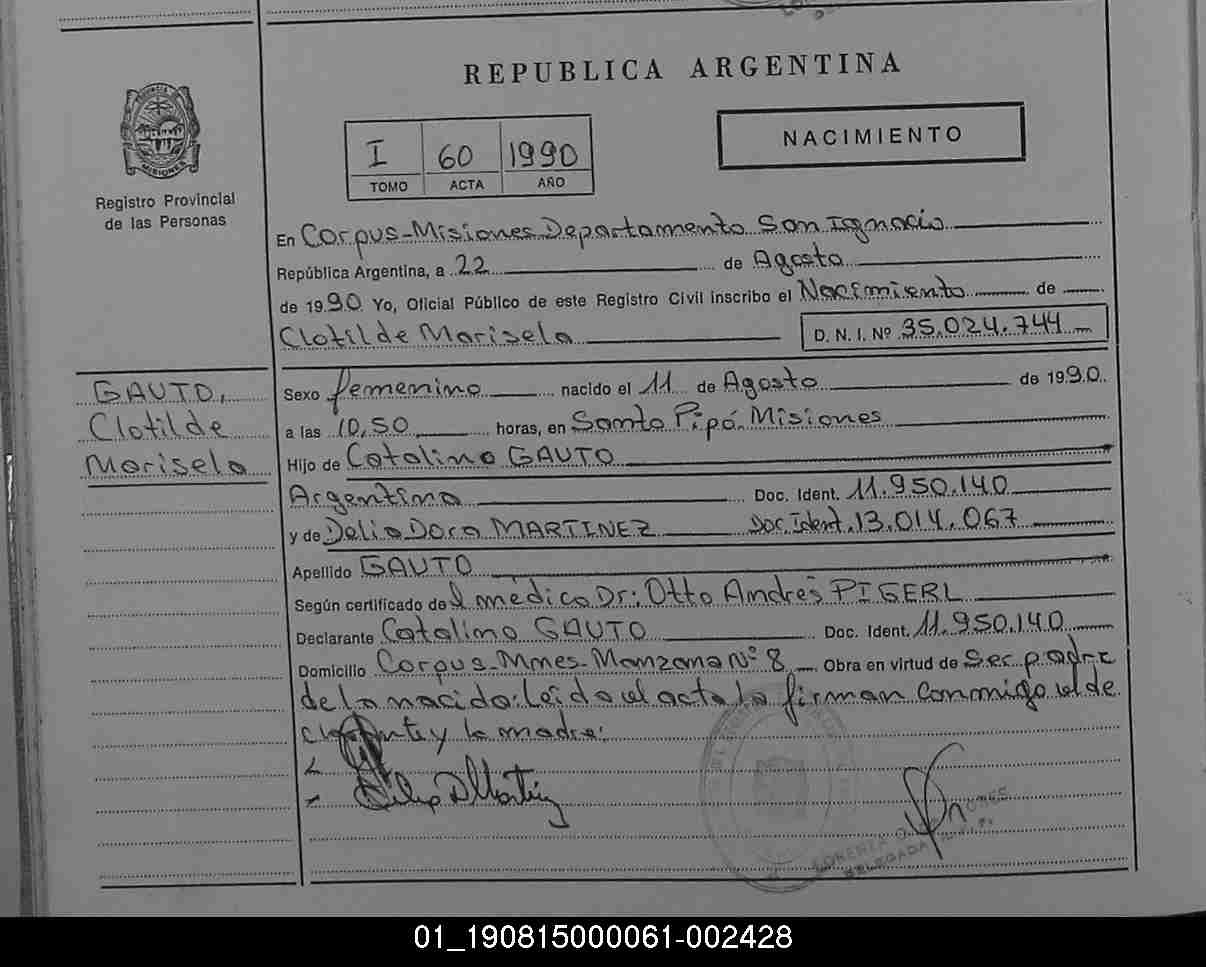 REPUBLICA ARGENTINA
PROVINCIA
MISIONES
Registro Provincial
de las Personas
I 60 1990
TOMO ACTA AÑO
NACIMIENTO
En Corpus-Misiones Departamento San Ignacio
República Argentina, a 22 de Agosto
de 1990 Yo, Oficial Público de este Registro Civil inscribo el Nacimiento de
Clotilde Marisela D. N. I. Nº 35.024.744
GAUTO,
Clotilde
Marisela
Sexo femenino nacido el 11 de Agosto de 1990.
a las 10,50 horas, en Santo Pipó. Misiones
Hijo de Catalino GAUTO
Argentino Doc. Ident. 11.950.140
y de Delia Dora MARTINEZ Doc. Ident. 13.014.067
Apellido GAUTO
Según certificado del médico Dr: Otto Andrés PIGERL
Declarante Catalino GAUTO Doc. Ident. 11.950.140
Domicilio Corpus-Mnes-Manzana Nº 8 Obra en virtud de ser padre
de la nacida: Leída el acta la firman conmigo el de
clarante y la madre:
DELEGADA
01_190815000061-002428